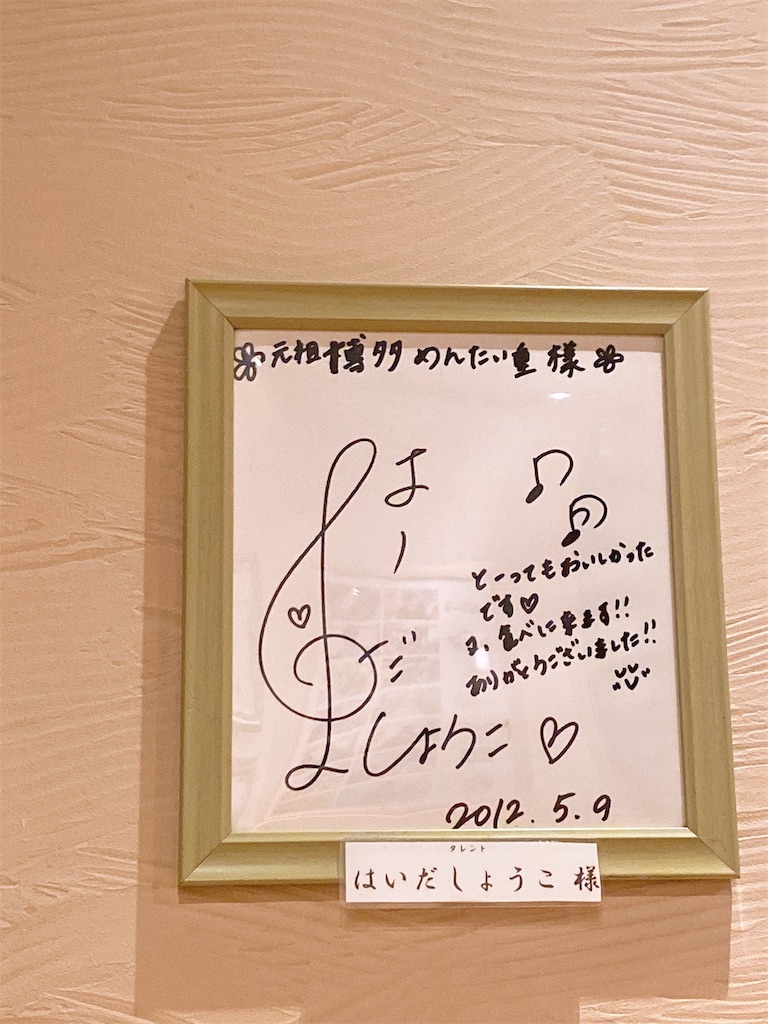 元祖博多めんたい重様
はいだ
しょうこ
とーってもおいしかった
です♡
又、食べに来ます!!
ありがとうございました!!
2012.5.9
タレント
はいだしょうこ 様